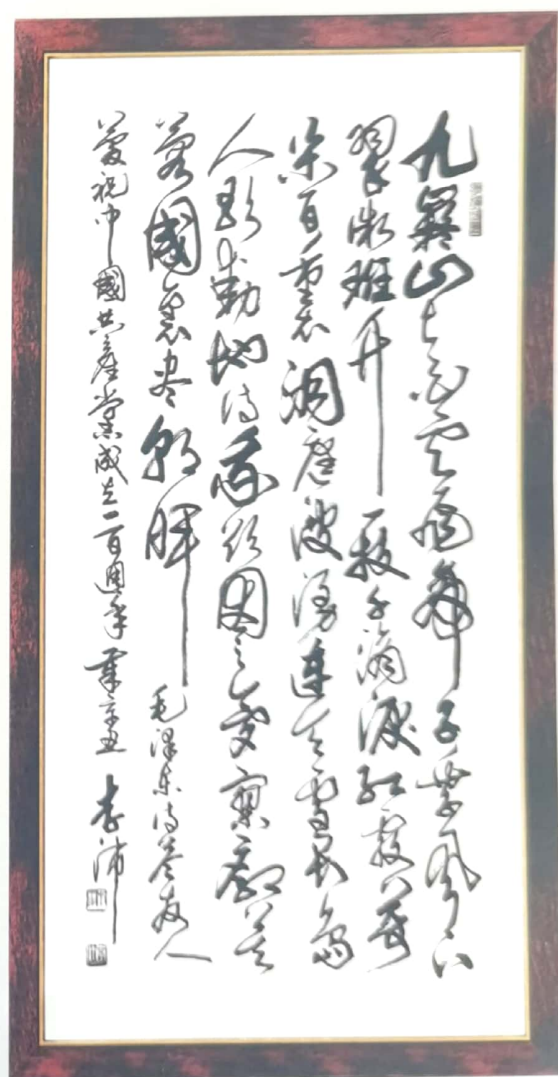 九嶷山上白云飛帝子乘風下
翠微斑竹一枝千滴淚紅霞萬
朵百重衣洞庭波湧連天雪長島
人歌動地詩我欲因之夢寥廓芙
蓉國裏尽朝暉 毛澤東詩答友人
慶祝中國共產黨成立一百週年 辛丑 李